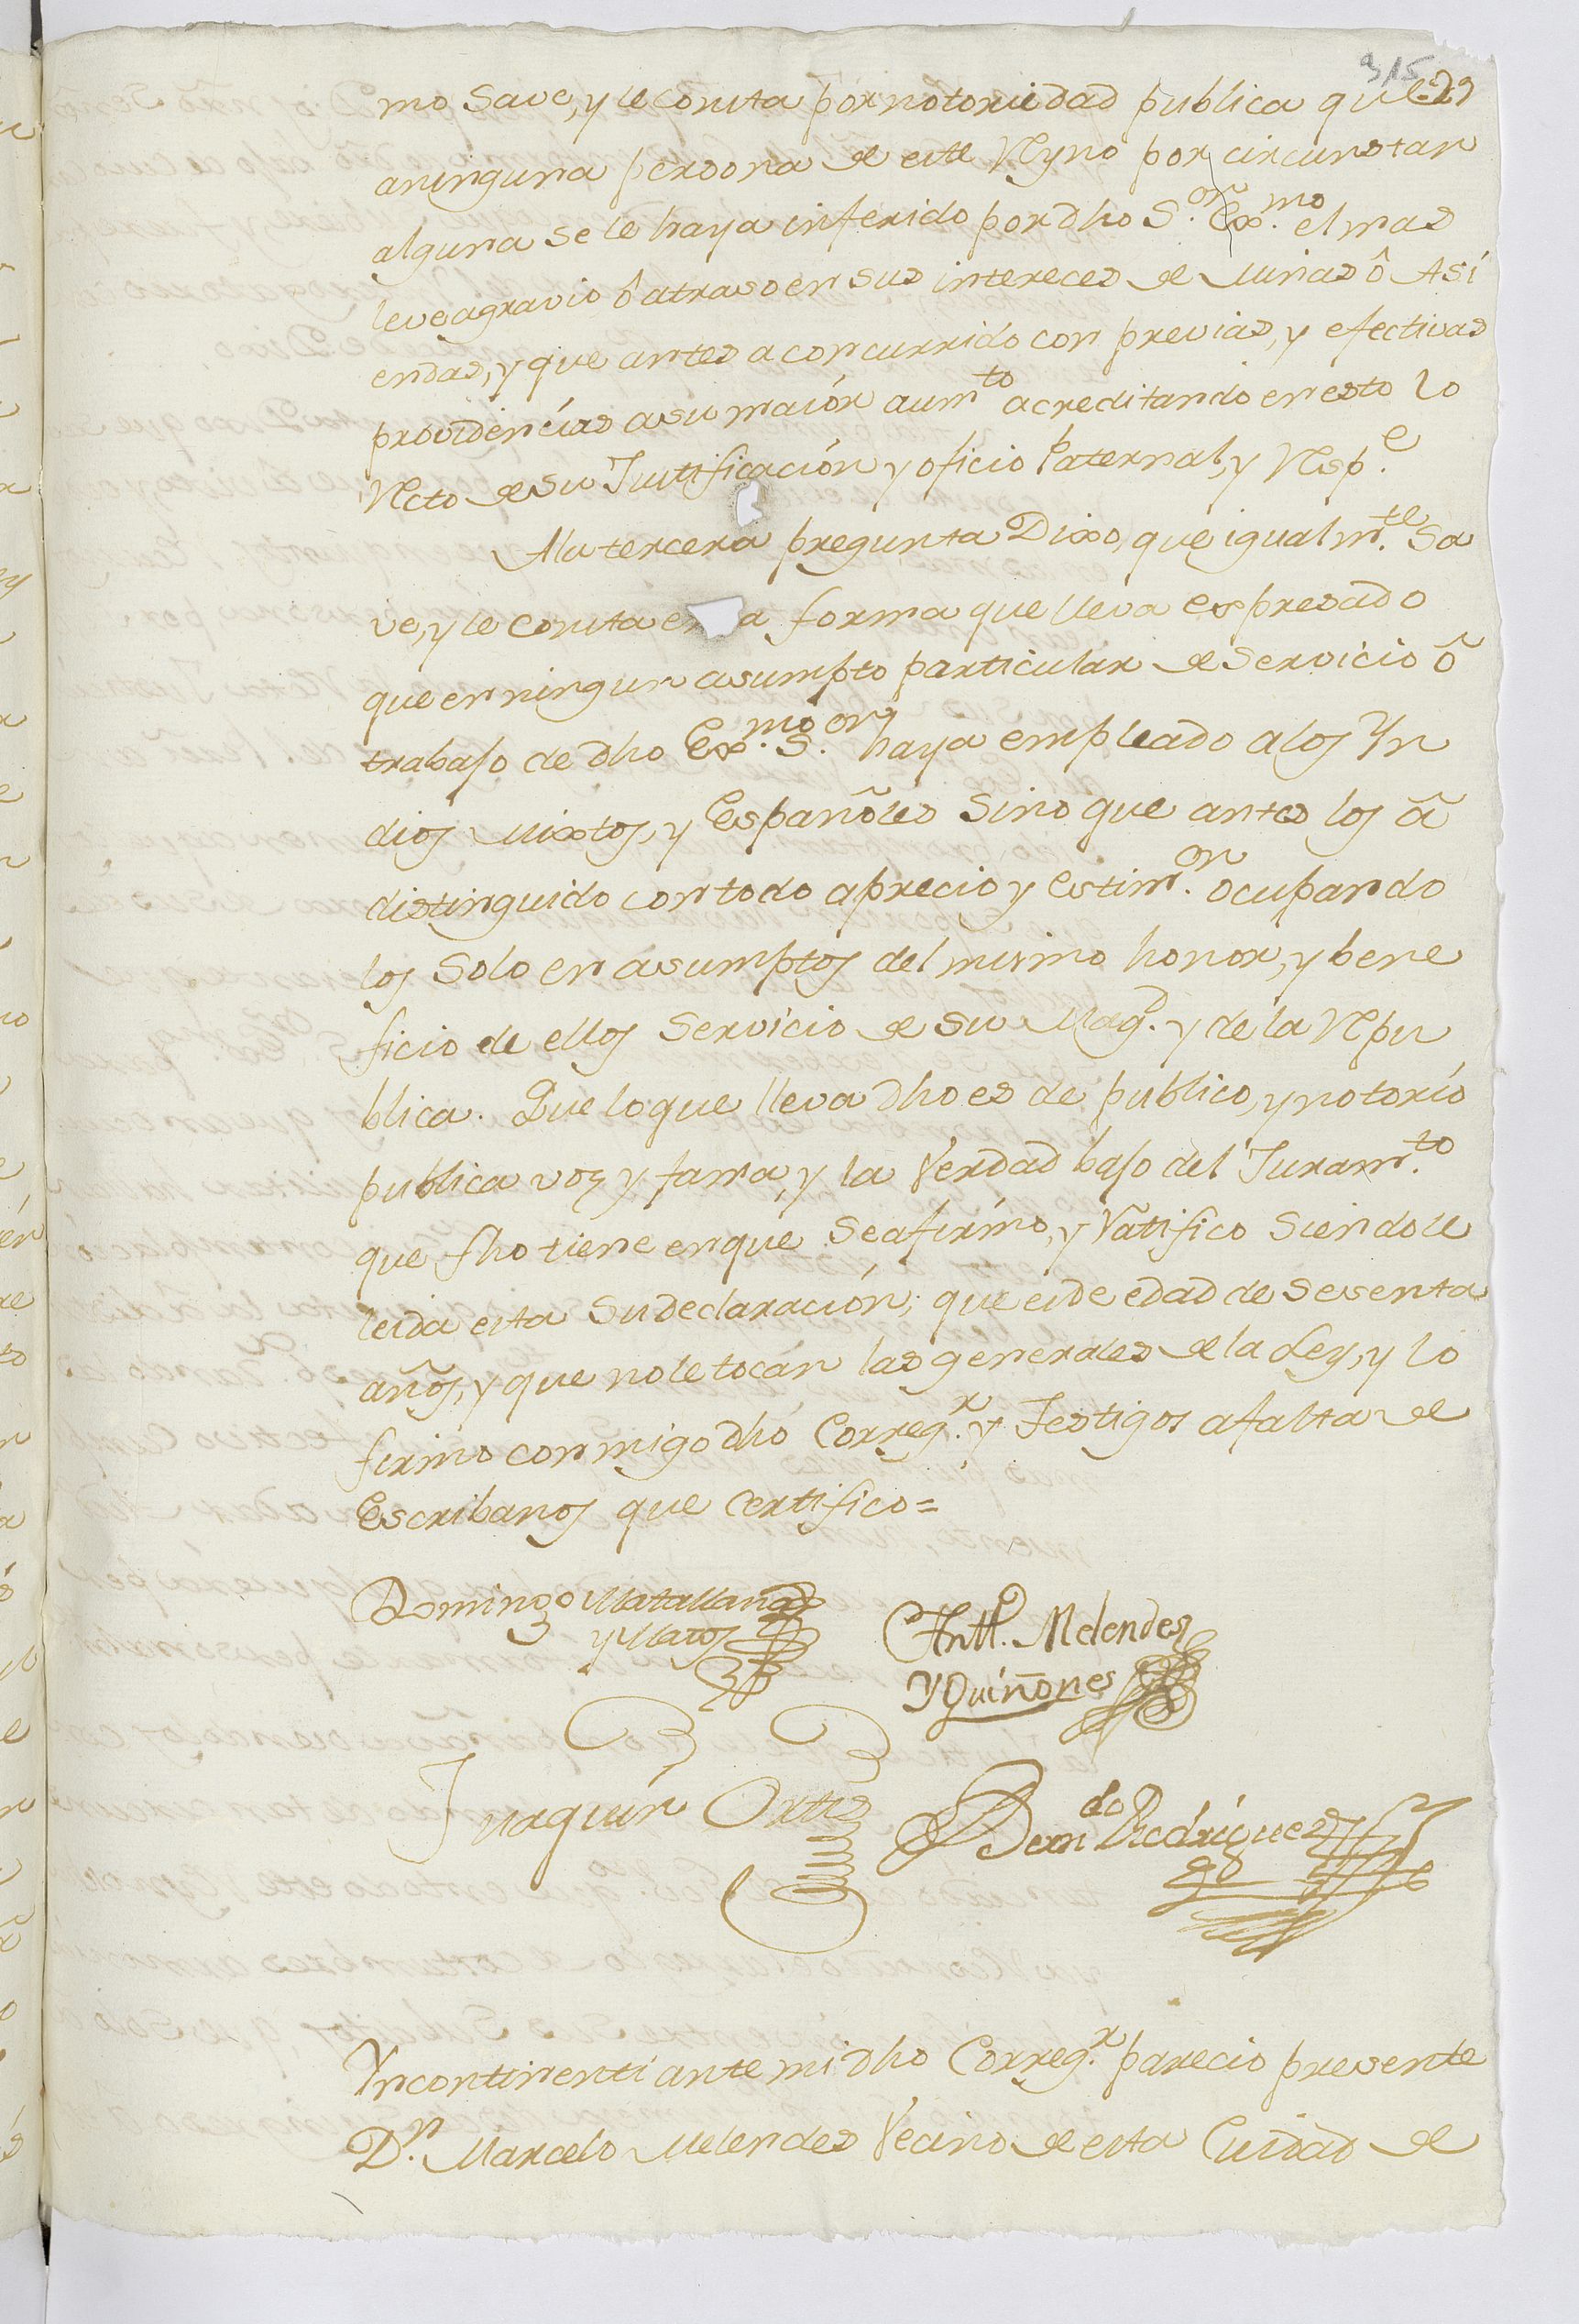 315
29
mo Save, y le consta por notoriedad publica que
aninguna persona de este Reyno por circunstan
alguna se le haya inferido por dho S.or Ex.mo el mas
leve agravio ô atraso en sus intereces de Minas ô Asi
endas, y que antes a concurrido con previas, y efectivas
providencias a su maión aum.to acreditando en esto lo
Recto de su Justificación y oficio Paternal, y Resp.e
Ala tercera pregunta Dixo, que igualm.te Sa
ve, y le consta en a forma que lleva expresado
que en ningun asumpto particular de Servicio ô
trabajo de dho Ex.mo S.or haya empleado a los Yn
dios Mixtos, y Españoles Sino que antes los â
distinguido con todo aprecio y estim.on ocupando
los Solo en asumptos del mismo honor, y bene
ficio de ellos Servicio de Su Mag.d y de la Repu
blica. Que lo que lleva dho es de publico, y notorio
publica voz y fama, y la Verdad bajo del Juram.to
que fho tiene en que Se afirmo, y Ratifico Siendole
leida esta Su declaración; que es de edad de Sesenta
años, y que no le tocan las generales de la Ley, y lo
firmo conmigo dho Correg.r y Testigos a falta de
Escribanos que Certifico=
Domingo Matallana
y Maros
Antt.o Melendes
Y Quiñones
Juaquin Ortis
Bern.do Rodriguez
Yncontinenti ante mi dho Correg.r parecio presente
D.n Marcelo Melendes Vecino de esta Ciudad de